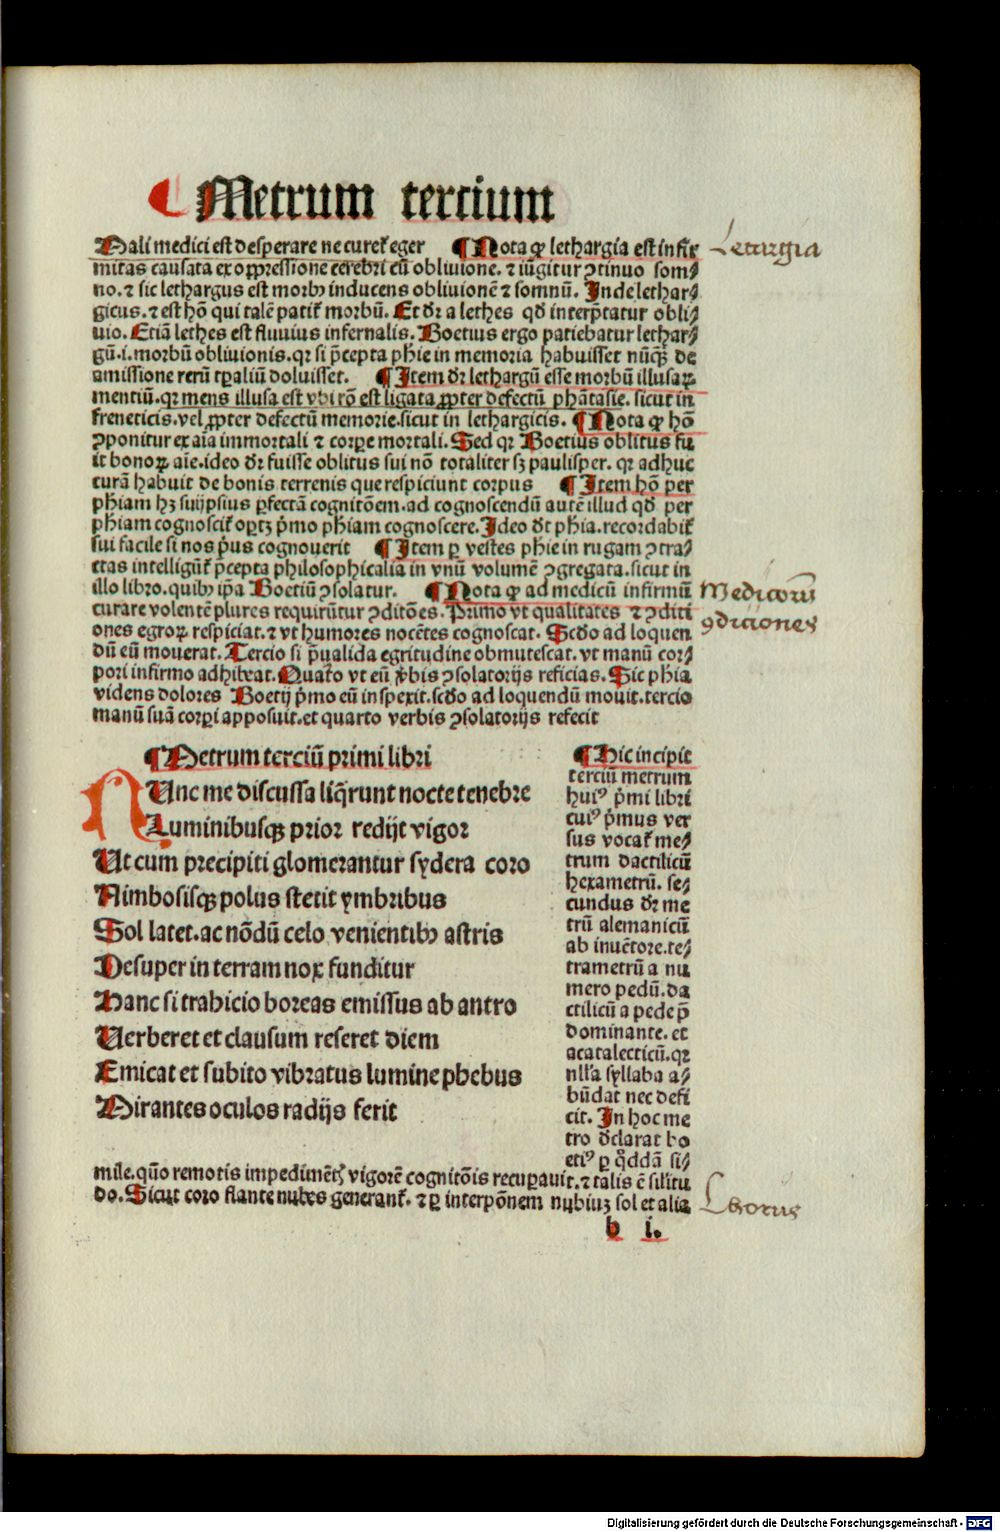 Metrum tercium
Mali medici est desperare ne curet᷑ eger ¶ Nota ꝙ lethargia est infir⸗
mitas causata ex oꝓpressione cerebri cū obliuione. ⁊ iūgitur ꝯtinuo som⸗
no. ⁊ sic lethargus est morbꝰ inducens obliuionē ⁊ somnū. Inde lethar⸗
gicus. ⁊ est hō qui talē patit᷑ morbū. Et dr̄ a lethes qd̄ interp̄tatur obli⸗
uio. Etiā lethes est fluuius infernalis. Boetius ergo patiebatur lethar⸗
gū .i. morbū obliuionis. qꝛ si p̄cepta ph̄ie in memoria habuisset nūqꝫ de
amissione rerū tꝑaliū doluisset. ¶ Item dr̄ lethargū esse morbū illusaꝝ
mentiū. qꝛ mens illusa est vbi rō est ligata ꝓpter defectū phātasie. sicut in
freneticis. vel ꝓpter defectū memorie. sicut in lethargicis. ¶ Nota ꝙ hō
ꝯponitur ex aīa immortali ⁊ corpꝑe mortali. Sed qꝛ Boetius oblitus fu
it bonoꝝ aīe. ideo dr̄ fuisse oblitus sui nō totaliter sꝫ paulisper. qꝛ adhuc
curā habuit de bonis terrenis que respiciunt corpus ¶ Item hō per
ph̄iam hꝫ suijpsius ꝑfectā cognitōem. ad cognoscendū autē illud qd̄ per
ph̄iam cognoscit᷑ oportꝫ p̄mo ph̄iam cognoscere. Ideo dt̄ ph̄ia. recordabit᷑
sui facile si nos p̄us cognouerit ¶ Item ꝑ vestes ph̄ie in rugam ꝯtra⸗
ctas intelligūt᷑ p̄cepta philosophicalia in vnū volumē ꝯgregata. sicut in
illo libro. quibꝰ ip̄a Boetiū ꝯsolatur. ¶ Nota ꝙ ad medicū infirmū
curare volentē plures requirūtur ꝯditōes. Primo vt qualitates ⁊ ꝯditi
ones egroꝝ respiciat. ⁊ vt humores nocētes cognoscat. Scd̄o ad loquen
dū eū mouerat. Tercio si p̄ualida egritudine obmutescat. vt manū cor⸗
pori infirmo adhibeat. Quarto vt eū v̄bis ꝯsolatorijs reficias. Sic ph̄ia
videns dolores Boetij p̄mo eū inspexit. scd̄o ad loquendū mouit. tercio
manū suā corꝑi apposuit. et quarto verbis ꝯsolatorijs refecit
Leturgia
Medicorū
ꝯdiciones
¶ Metrum terciū primi libri
NUnc me discussa liq̄runt nocte tenebre
Luminibusqꝫ prior redijt vigor
Ut cum precipiti glomerantur sydera coro
Nimbosisqꝫ polus stetit ymbribus
Sol latet. ac nōdū celo venientibꝰ astris
Desuper in terram nox funditur
Hanc si trahicio boreas emissus ab antro
Verberet et clausum reseret diem
Emicat et subito vibratus lumine phebus
Mirantes oculos radijs ferit
¶ Hic incipit
terciū metrum
huiꝰ p̄mi libri
cuiꝰ p̄mus ver
sus vocat᷑ me⸗
trum dactilicū
hexametrū. se⸗
cundus dr̄ me
trū alemanicū
ab inuētore. te⸗
trametrū a nu
mero pedū. da
ctilicū a pede p̄
dominante. et
acatalecticū. qꝛ
nll̄a syllaba a⸗
būdat nec defi
cit. In hoc me
tro dc̄larat bo
etiꝰ ꝑ qd̄dā si⸗
mile. quō remotis impedimētꝭ vigorē cognitōis recuꝑauit. ⁊ talis ē sil̄itu
do. Sicut coro flante nubes generant᷑. ⁊ ꝑ interpōnem nubiuꝫ sol et alia
Chorus
b i.
Digitalisierung gefördert durch die Deutsche Forschungsgemeinschaft - DFG